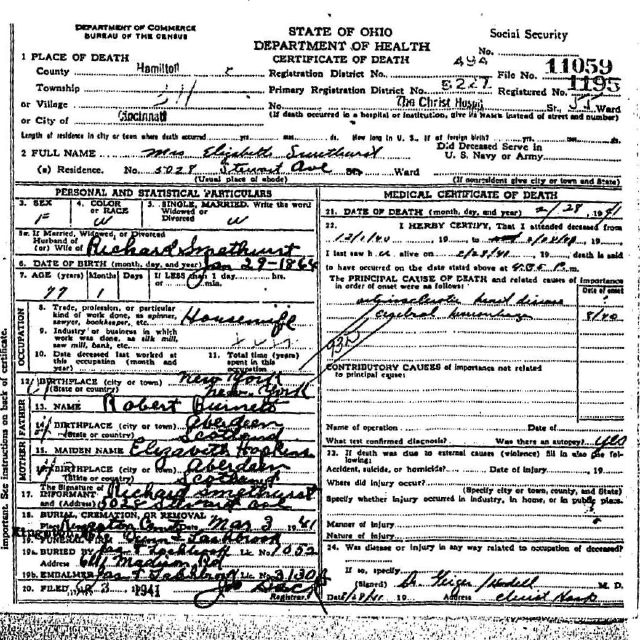 DEPARTMENT OF COMMERCE
BUREAU OF THE CENSUS
STATE OF OHIO
DEPARTMENT OF HEALTH
CERTIFICATE OF DEATH
Social Security
No.
1 PLACE OF DEATH
County Hamilton
Registration District No. 494
File No. 11059
Township
Primary Registration District No. 5227
Registered No. 1195
or Village
No. The Christ Hospi St., Ward
or City of Cincinnati
(If death occurred in a hospital or institution, give its NAME instead of street and number)
Length of residence in city or town where death occurred yrs. mos. ds. How long in U. S., if of foreign birth? yrs. mos. ds.
2 FULL NAME Mrs Elizabeth Smethurst
Did Deceased Serve in
U. S. Navy or Army
(a) Residence. No. 5028 Ave St., Ward
(Usual place of abode) (If nonresident give city or town and State)
PERSONAL AND STATISTICAL PARTICULARS
3. SEX F
4. COLOR or RACE W
5. SINGLE, MARRIED. Write the word Widowed or Divorced W
5a. If Married, Widowed, or Divorced
Husband of
(or) Wife of Richard Smethurst
6. DATE OF BIRTH (month, day, and year) Jan 29-1864
7. AGE (years) 77 Months 1 Days If LESS than 1 day, hrs. min.
OCCUPATION
8. Trade, profession, or particular
kind of work done, as spinner,
sawyer, bookkeeper, etc. Housewife
9. Industry or business in which
work was done, as silk mill,
saw mill, bank, etc.
10. Date deceased last worked at
this occupation (month and
year)
11. Total time (years)
spent in this
occupation
12. BIRTHPLACE (city or town) New York
(State or country) New York
FATHER
13. NAME Robert Burnett
14. BIRTHPLACE (city or town) Aberdeen
(State or country) Scotland
MOTHER
15. MAIDEN NAME Elizabeth Hopkins
16. BIRTHPLACE (city or town) Aberdeen
(State or country) Scotland
17. The Signature of
INFORMANT Richard Smethurst
and (Address) Ave
18. BURIAL, CREMATION, OR REMOVAL
Place Date Mar 3 1941
19. FUNERAL FIRM
19a. BURIED BY Lic. No. 1052
Madison Rd
19b. EMBALMER Lic. No.
20. FILED 3 1941
Registrar.
MEDICAL CERTIFICATE OF DEATH
21. DATE OF DEATH (month, day, and year) 2/28 1941
22. I HEREBY CERTIFY, That I attended deceased from
12/1/40, 19 to 19
I last saw h alive on 19 death is said
to have occurred on the date stated above at m.
The PRINCIPAL CAUSE OF DEATH and related causes of importance
in order of onset were as follows:
Date of onset
arteriosclerotic heart disease ?
cerebral hemorrhage 8/40
CONTRIBUTORY CAUSES of importance not related
to principal cause:
Name of operation Date of
What test confirmed diagnosis? Was there an autopsy? yes
23. If death was due to external causes (violence) fill in also the following:
Accident, suicide, or homicide? Date of injury 19
Where did injury occur?
(Specify city or town, county, and State)
Specify whether injury occurred in industry, in home, or in public place.
Manner of injury
Nature of injury
24. Was disease or injury in any way related to occupation of deceased?
If so, specify
(Signed) M. D.
Date Address
important. See instructions on back of certificate.